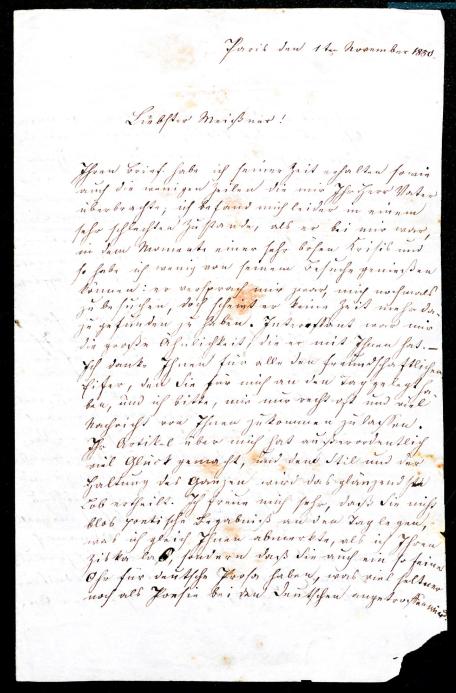 Paris den 1ten November 1850.
Liebster Meißner!
Ihren Brief habe ich seiner Zeit erhalten sowie
auch die wenigen Zeilen die mir Ihr Herr Vater
überbrachte; ich befand mich leider in einem
sehr schlechten Zustande, als er bei mir war,
in dem Momente einer sehr bösen Krisis und
so habe ich wenig von seinem Besuche genießen
können: er versprach mir zwar, mich nochmals
zu besuchen, doch scheint er keine Zeit mehr da-
zu gefunden zu haben. Interessant war mir
die große Ähnlichkeit, die er mit Ihnen hat. —
Ich danke Ihnen für alle den freundschaftlichen
Eifer, den Sie für mich an den Tag gelegt ha-
ben, und ich bitte, mir nur recht oft und viel
Nachricht von Ihnen zukommen zu lassen.
Ihr Artikel über mich hat außerordentlich
viel Glück gemacht, und dem Stil und der
Haltung des Ganzen wird das glänzendste
Lob ertheilt. Ich freue mich sehr, daß Sie nicht
blos poetische Begabniß an den Tag legen,
was ich gleich Ihnen abmerkte, als ich Ihren
Ziska las, sondern daß Sie auch ein so feines
Ohr für deutsche Prosa haben, was viel seltner
noch als Poesie bei den Deutschen angetroffen wird.